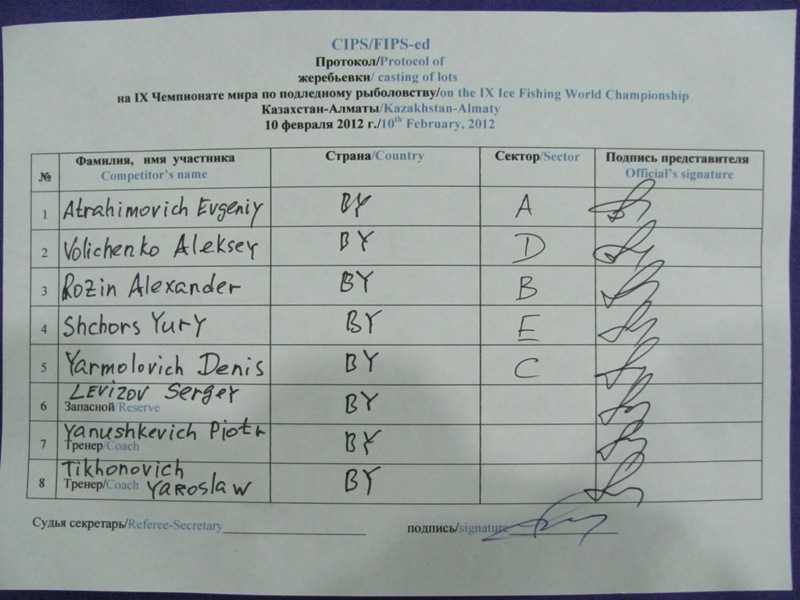 CIPS/FIPS-ed
Протокол/Protocol of
жеребьевки/ casting of lots
на IX Чемпионате мира по подледному рыболовству/on the IX Ice Fishing World Championship
Казахстан-Алматы/Kazakhstan-Almaty
10 февраля 2012 г./10th February, 2012
№ Фамилия, имя участника Страна/Country Сектор/Sector Подпись представителя
Competitor's name Official's signature
1 Atrahimovich Evgeniy BY A
2 Volichenko Aleksey BY D
3 Rozin Alexander BY B
4 Shchors Yury BY E
5 Yarmolovich Denis BY C
Levizov Sergey
6 Запасной/Reserve BY
Yanushkevich Piotr
7 Тренер/Coach BY
Tikhonovich
8 Тренер/Coach Yaroslaw BY
Судья секретарь/Referee-Secretary подпись/signature